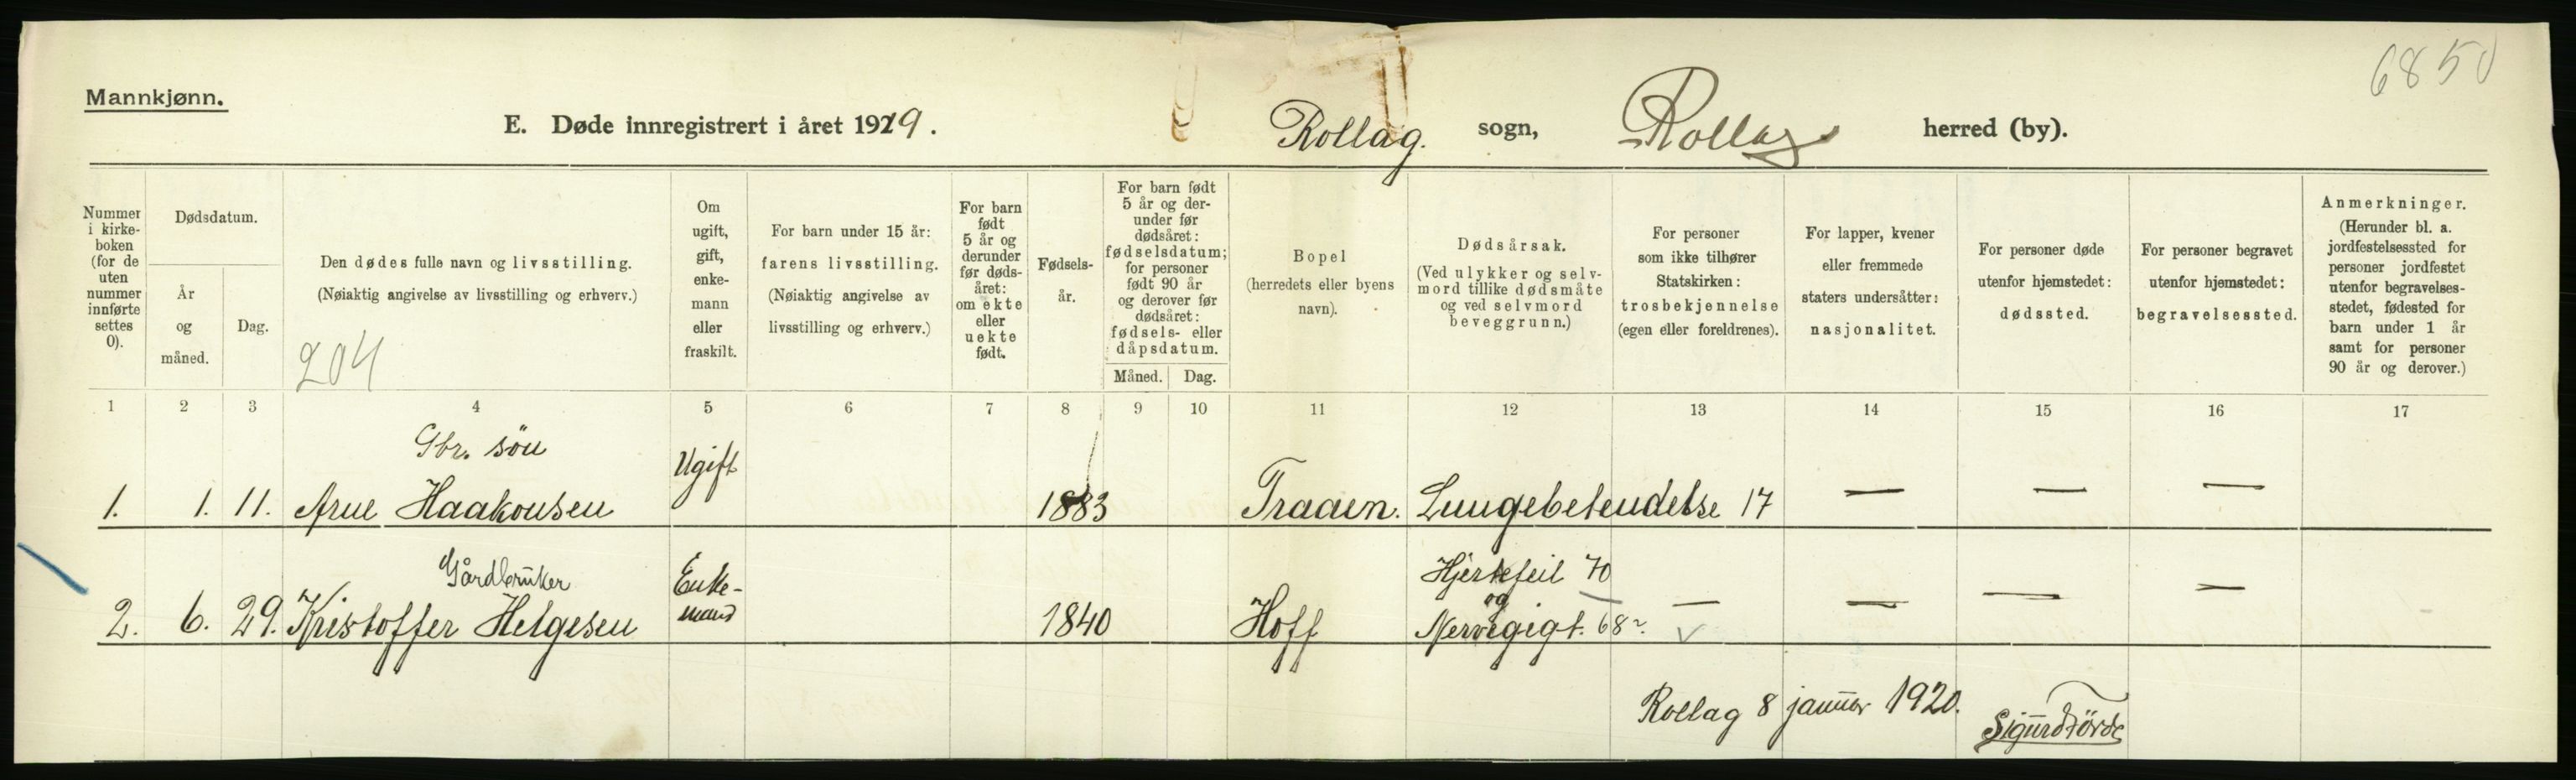 6850
Mannkjønn.
E. Døde innregistrert i året 1919. Rollag. sogn, Rollag herred (by).
Nummer i kirke- boken (for de uten nummer innførte settes 0).
Dødsdatum.
År og måned.
Dag.
Den dødes fulle navn og livsstilling.
(Nøiaktig angivelse av livsstilling og erhverv.)
204
Om ugift, gift, enke- mann eller fraskilt.
For barn under 15 år: farens livsstilling. (Nøiaktig angivelse av livsstilling og erhverv.)
For barn født 5 år og derunder før døds- året: om ekte eller uekte født.
Fødsels- år.
For barn født 5 år og der- under før dødsåret: fødselsdatum; for personer født 90 år og derover før dødsåret: fødsels- eller dåpsdatum.
Måned. Dag.
Bopel (herredets eller byens navn).
Dødsårsak. (Ved ulykker og selv- mord tillike dødsmåte og ved selvmord beveggrunn.)
For personer som ikke tilhører Statskirken: trosbekjennelse (egen eller foreldrenes).
For lapper, kvener eller fremmede staters undersåtter: nasjonalitet.
For personer døde utenfor hjemstedet: dødssted.
For personer begravet utenfor hjemstedet: begravelsessted.
Anmerkninger. (Herunder bl. a. jordfestelsessted for personer jordfestet utenfor begravelses- stedet, fødested for barn under 1 år samt for personer 90 år og derover.)
1 2 3 4 5 6 7 8 9 10 11 12 13 14 15 16 17
Gbr. søn
Ugift
1. 1. 11. Arne Haakonsen 1883 Traaen. Lungebetendelse 17 — — —
Gårdbruker
Enke-
mand
Hjertefeil 70
og
2. 6. 29. Kristoffer Helgesen 1840 Hoff Nervegigt. 68 — — — —
Rollag 8 januar 1920.
Sigurd Førde